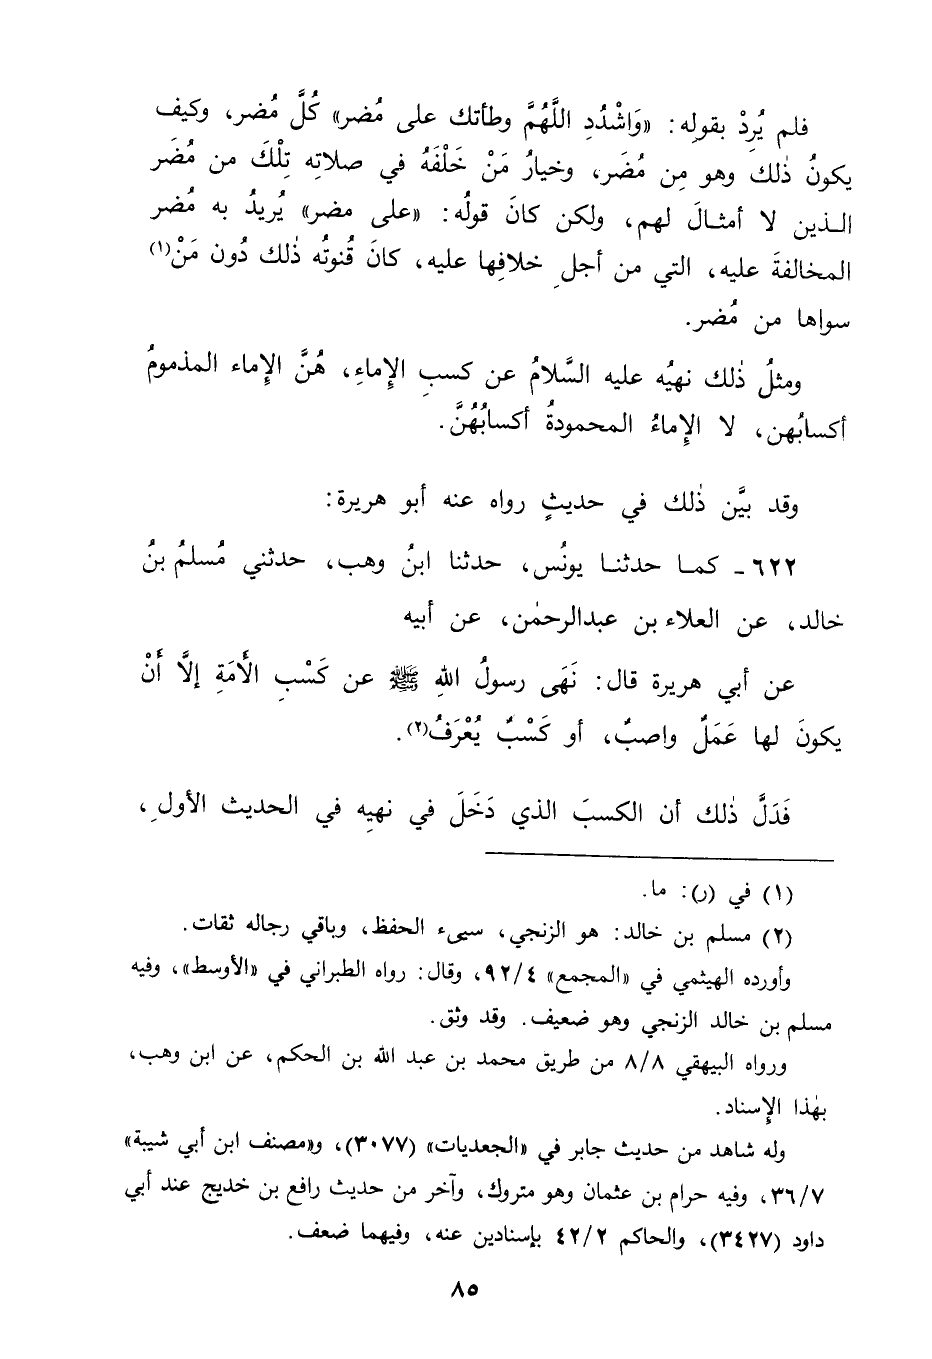 فلم يُرِدْ بقولِه: «وَاشْدُدِ اللَّهُمَّ وطأتك على مُضر» كُلَّ مُضر، وكيف
يكونُ ذٰلك وهو مِن مُضَر، وخيارُ مَنْ خَلْفَهُ في صلاتِه تِلْكَ من مُضَر
الـذين لا أمثـالَ لهم، ولكن كانَ قولُه: «على مضر» يُريدُ به مُضر
المخالفةَ عليه، التي من أجلِ خلافِها عليه، كانَ قُنوتُه ذٰلك دُون مَنْ(١)
سواها من مُضر.
ومثلُ ذٰلك نهيُه عليه السَّلامُ عن كسبِ الإِماءِ، هُنَّ الإِماء المذمومُ
أكسابُهن، لا الإِماءُ المحمودةُ أكسابُهُنَّ.
وقد بيَّن ذٰلك في حديثٍ رواه عنه أبو هريرة:
٦٢٢ - كمـا حدثنـا يونُس، حدثنا ابنُ وهب، حدثني مُسلمُ بنُ
خالد، عن العلاء بن عبدالرحمٰن، عن أبيه
عن أبي هريرة قال: نَهَى رسولُ اللهِ ﷺ عن كَسْبِ الأَمَةِ إلَّا أَنْ
يكونَ لها عَمَلٌ واصبٌ، أو كَسْبٌ يُعْرَفُ(٢).
فَدَلَّ ذٰلك أن الكسبَ الذي دَخَلَ في نهيِه في الحديث الأولِ،
(١) في (ر): ما.
(٢) مسلم بن خالد: هو الزنجي، سيىء الحفظ، وباقي رجاله ثقات.
وأورده الهيثمي في «المجمع» ٩٢/٤، وقال: رواه الطبراني في «الأوسط»، وفيه
مسلم بن خالد الزنجي وهو ضعيف. وقد وثق.
ورواه البيهقي ٨/٨ من طريق محمد بن عبد الله بن الحكم، عن ابن وهب،
بهٰذا الإِسناد.
وله شاهد من حديث جابر في «الجعديات» (٣٠٧٧)، و«مصنف ابن أبي شيبة»
٣٦/٧، وفيه حرام بن عثمان وهو متروك، وآخر من حديث رافع بن خديج عند أبي
داود (٣٤٢٧)، والحاكم ٤٢/٢ بإسنادين عنه، وفيهما ضعف.
٨٥